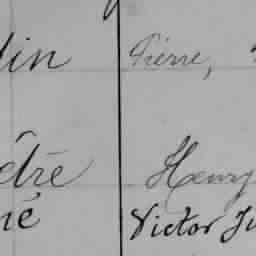 lin Pierre,
être Henry
né Victor Ju